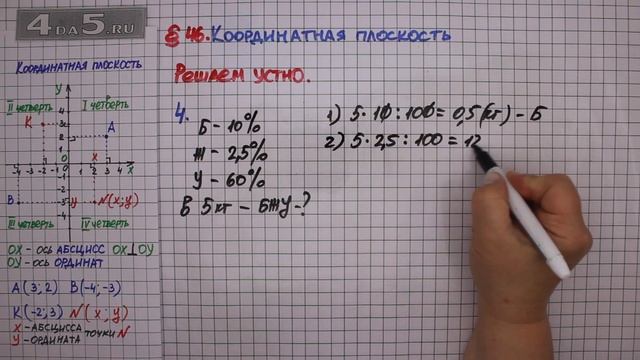 4DA5.RU
§ 46. Координатная плоскость
Решаем устно.
Координатная плоскость
y
II четверть
I четверть
К
А
x
В
y
N(x; y)
III четверть
IV четверть
OX - ось абсцисс OX⊥OY
OY - ось ординат
A(3; 2) B(-4; -3)
K(-2; 3) N(x; y)
X - абсцисса
Y - ордината
точки N
4.
Б - 10%
Ж - 2,5%
У - 60%
В 5кг - БЖУ-?
1) 5·10:100=0,5(кг) - Б
2) 5·2,5:100=12